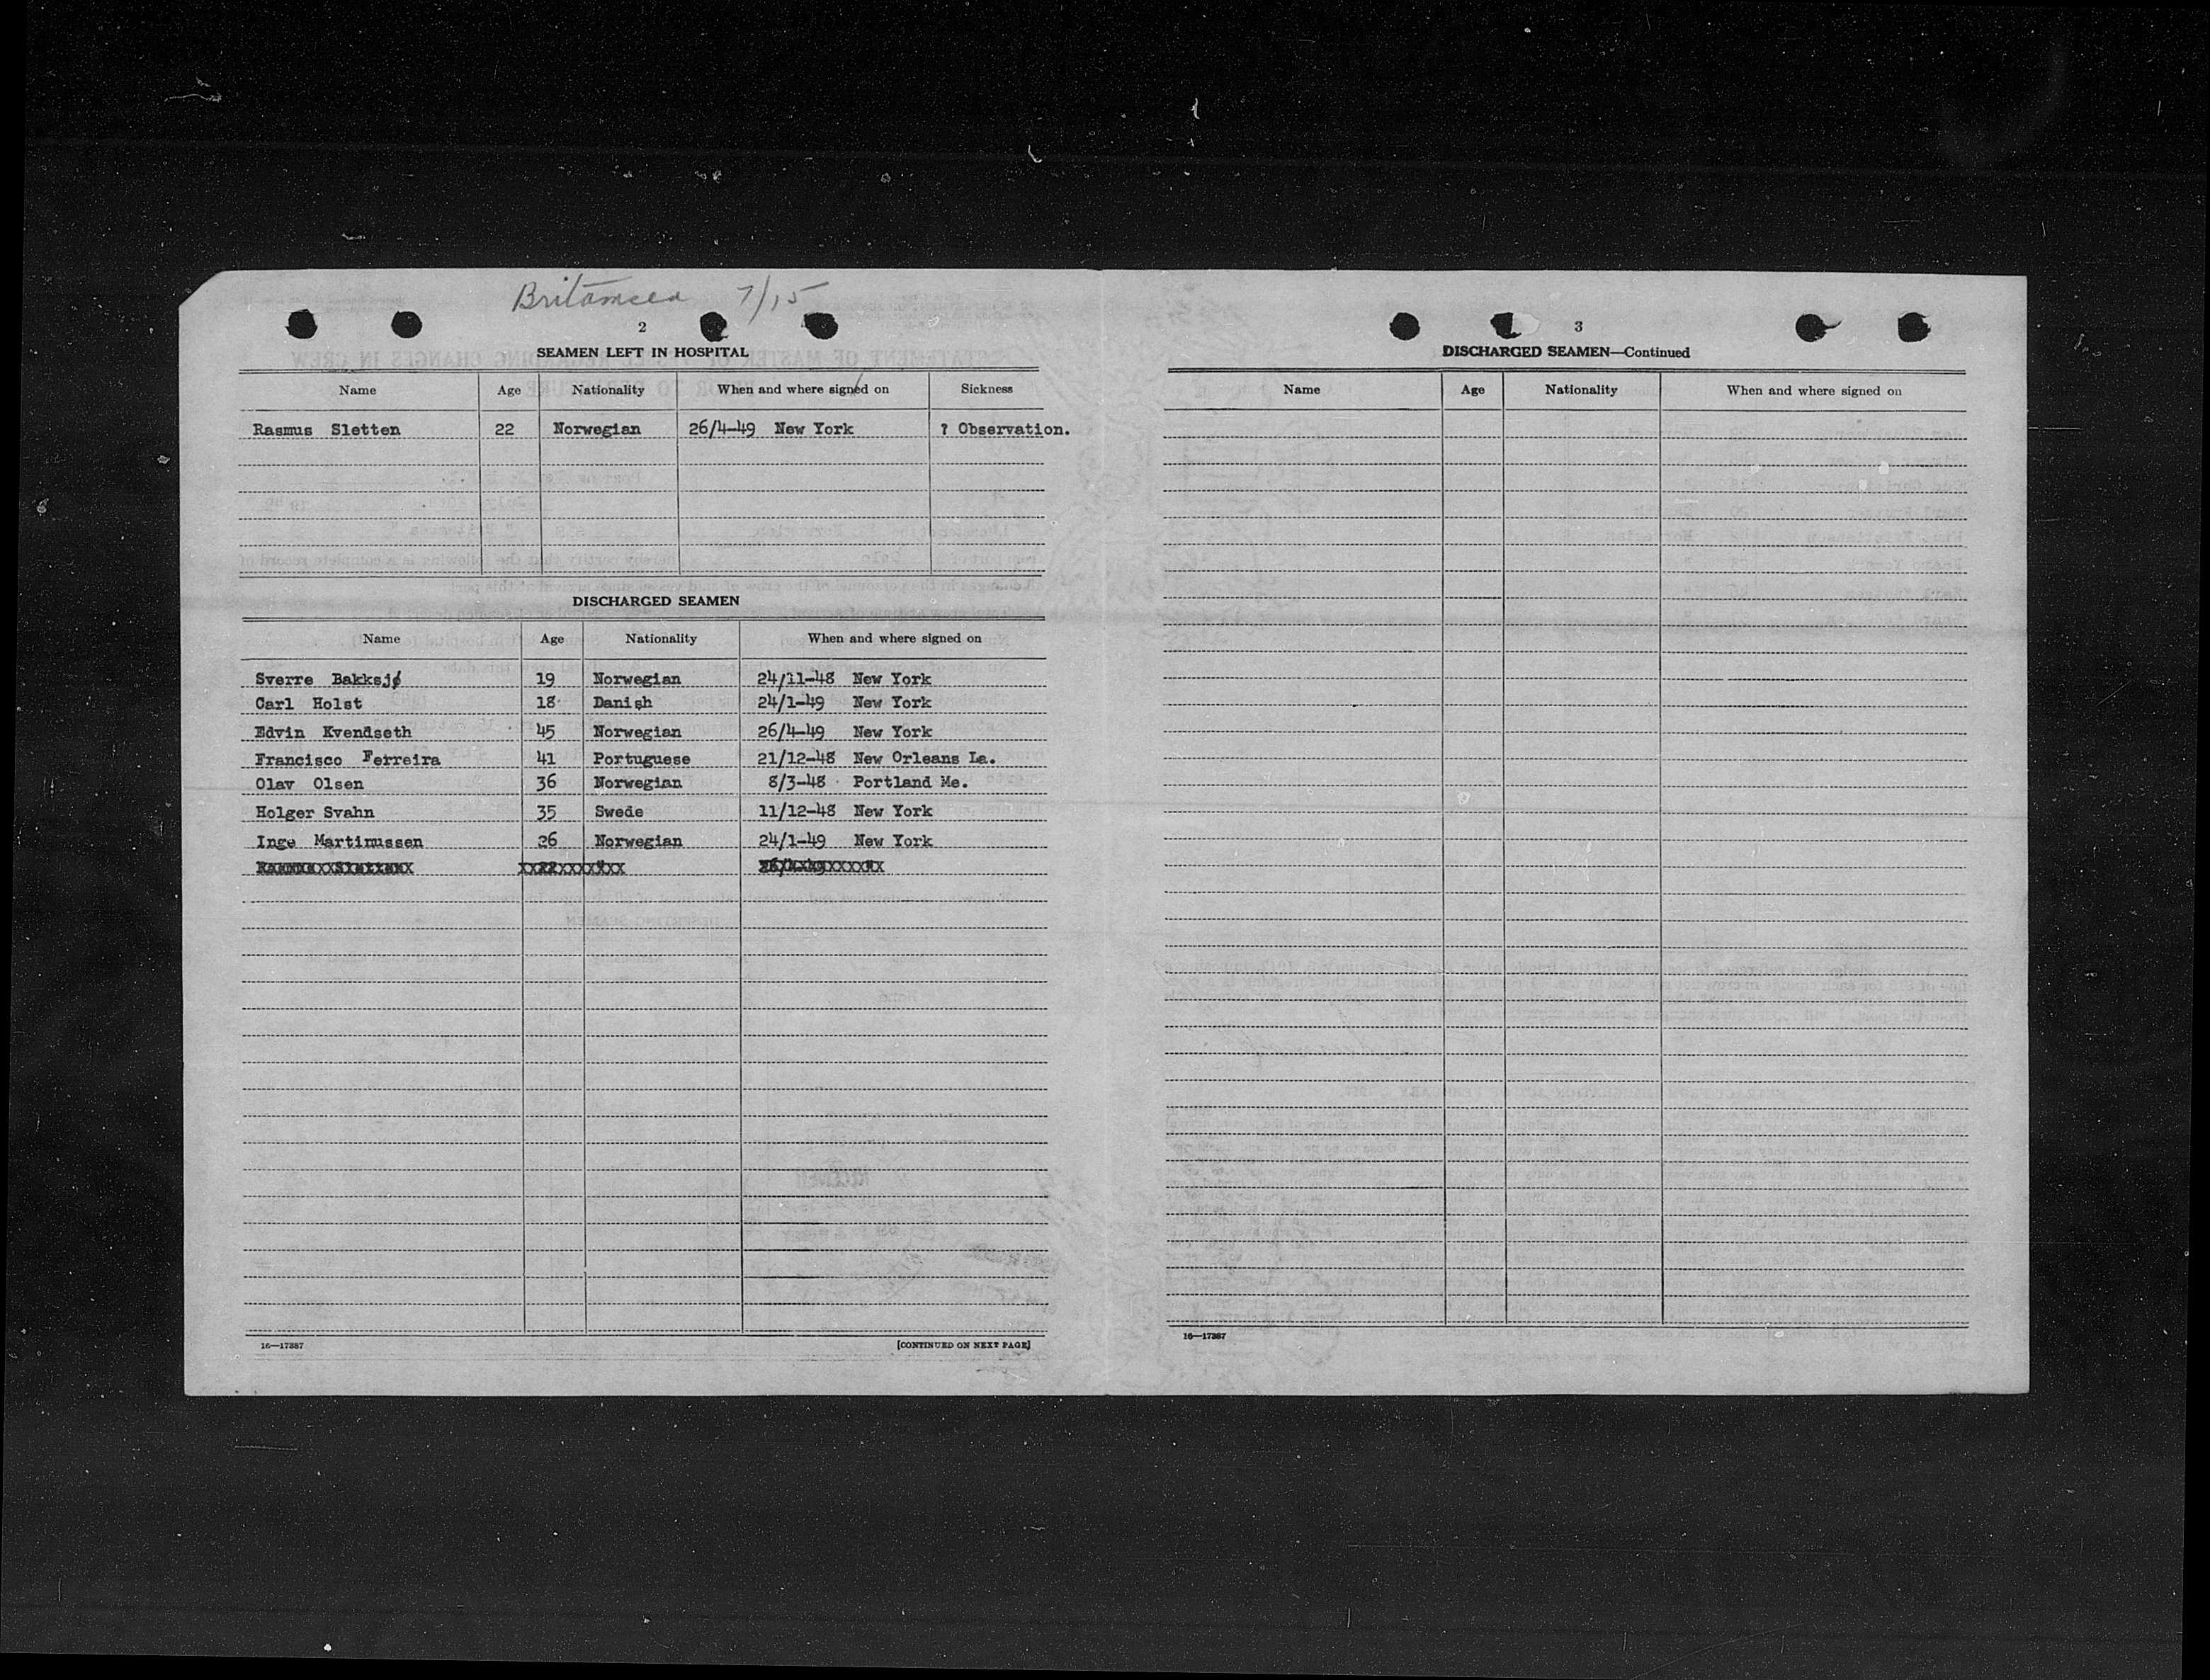 Britamsea 7/15
2
SEAMEN LEFT IN HOSPITAL
Name Age Nationality When and where signed on Sickness
Rasmus Sletten 22 Norwegian 26/4-49 New York ? Observation.
DISCHARGED SEAMEN
Name Age Nationality When and where signed on
Sverre Bakksjø 19 Norwegian 24/11-48 New York
Carl Holst 18 Danish 24/1-49 New York
Edvin Kvendseth 45 Norwegian 26/4-49 New York
Francisco Ferreira 41 Portuguese 21/12-48 New Orleans La.
Olav Olsen 36 Norwegian 8/3-48 Portland Me.
Holger Svahn 35 Swede 11/12-48 New York
Inge Martinussen 26 Norwegian 24/1-49 New York
16—17387 [CONTINUED ON NEXT PAGE]
3
DISCHARGED SEAMEN—Continued
Name Age Nationality When and where signed on
16—17387